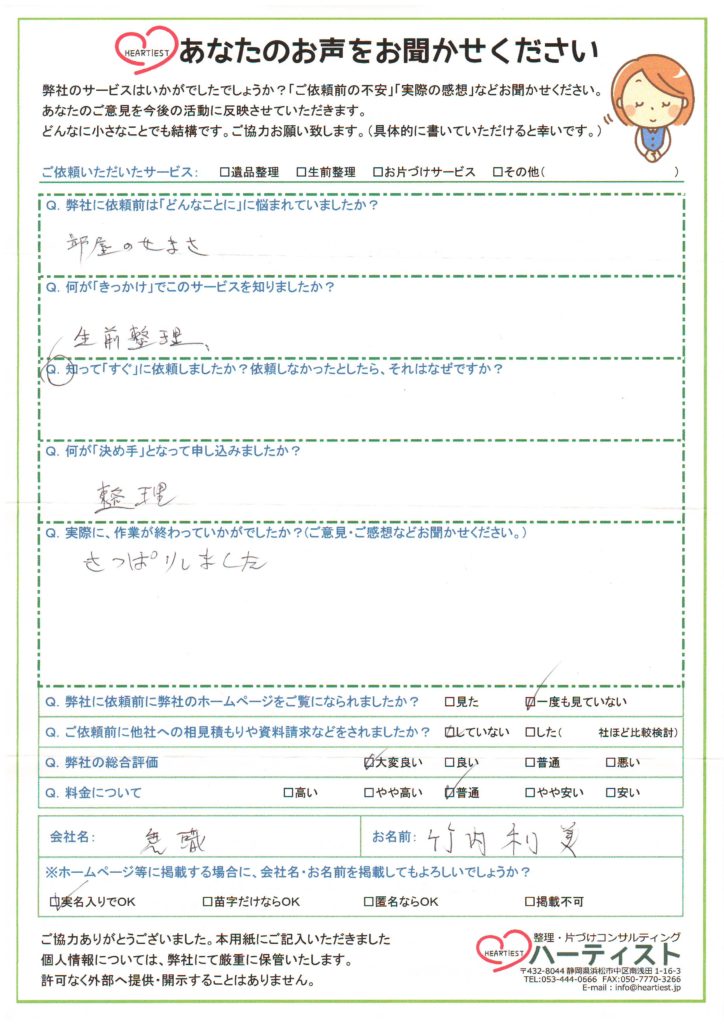 HEARTIEST あなたのお声をお聞かせください
弊社のサービスはいかがでしたでしょうか?「ご依頼前の不安」「実際の感想」などお聞かせください。
あなたのご意見を今後の活動に反映させていただきます。
どんなに小さなことでも結構です。ご協力お願い致します。(具体的に書いていただけると幸いです。)
ご依頼いただいたサービス: □遺品整理 □生前整理 □お片づけサービス □その他( )
Q. 弊社に依頼前は「どんなことに」に悩まれていましたか?
部屋のせまさ
Q. 何が「きっかけ」でこのサービスを知りましたか?
生前整理、
Q. 知って「すぐ」に依頼しましたか?依頼しなかったとしたら、それはなぜですか?
Q. 何が「決め手」となって申し込みましたか?
整理
Q. 実際に、作業が終わっていかがでしたか?(ご意見・ご感想などお聞かせください。)
さっぱりしました
Q. 弊社に依頼前に弊社のホームページをご覧になられましたか? □見た ☑一度も見ていない
Q. ご依頼前に他社への相見積もりや資料請求などをされましたか? ☑していない □した( 社ほど比較検討)
Q. 弊社の総合評価 ☑大変良い □良い □普通 □悪い
Q. 料金について □高い □やや高い ☑普通 □やや安い □安い
会社名: 無職 お名前: 竹内利美
※ホームページ等に掲載する場合に、会社名・お名前を掲載してもよろしいでしょうか?
☑実名入りでOK □苗字だけならOK □匿名ならOK □掲載不可
ご協力ありがとうございました。本用紙にご記入いただきました
個人情報については、弊社にて厳重に保管いたします。
許可なく外部へ提供・開示することはありません。
整理・片づけコンサルティング
HEARTIEST ハーティスト
〒432-8044 静岡県浜松市中区南浅田 1-16-3
TEL:053-444-0666 FAX:050-7770-3266
E-mail : info@heartiest.jp